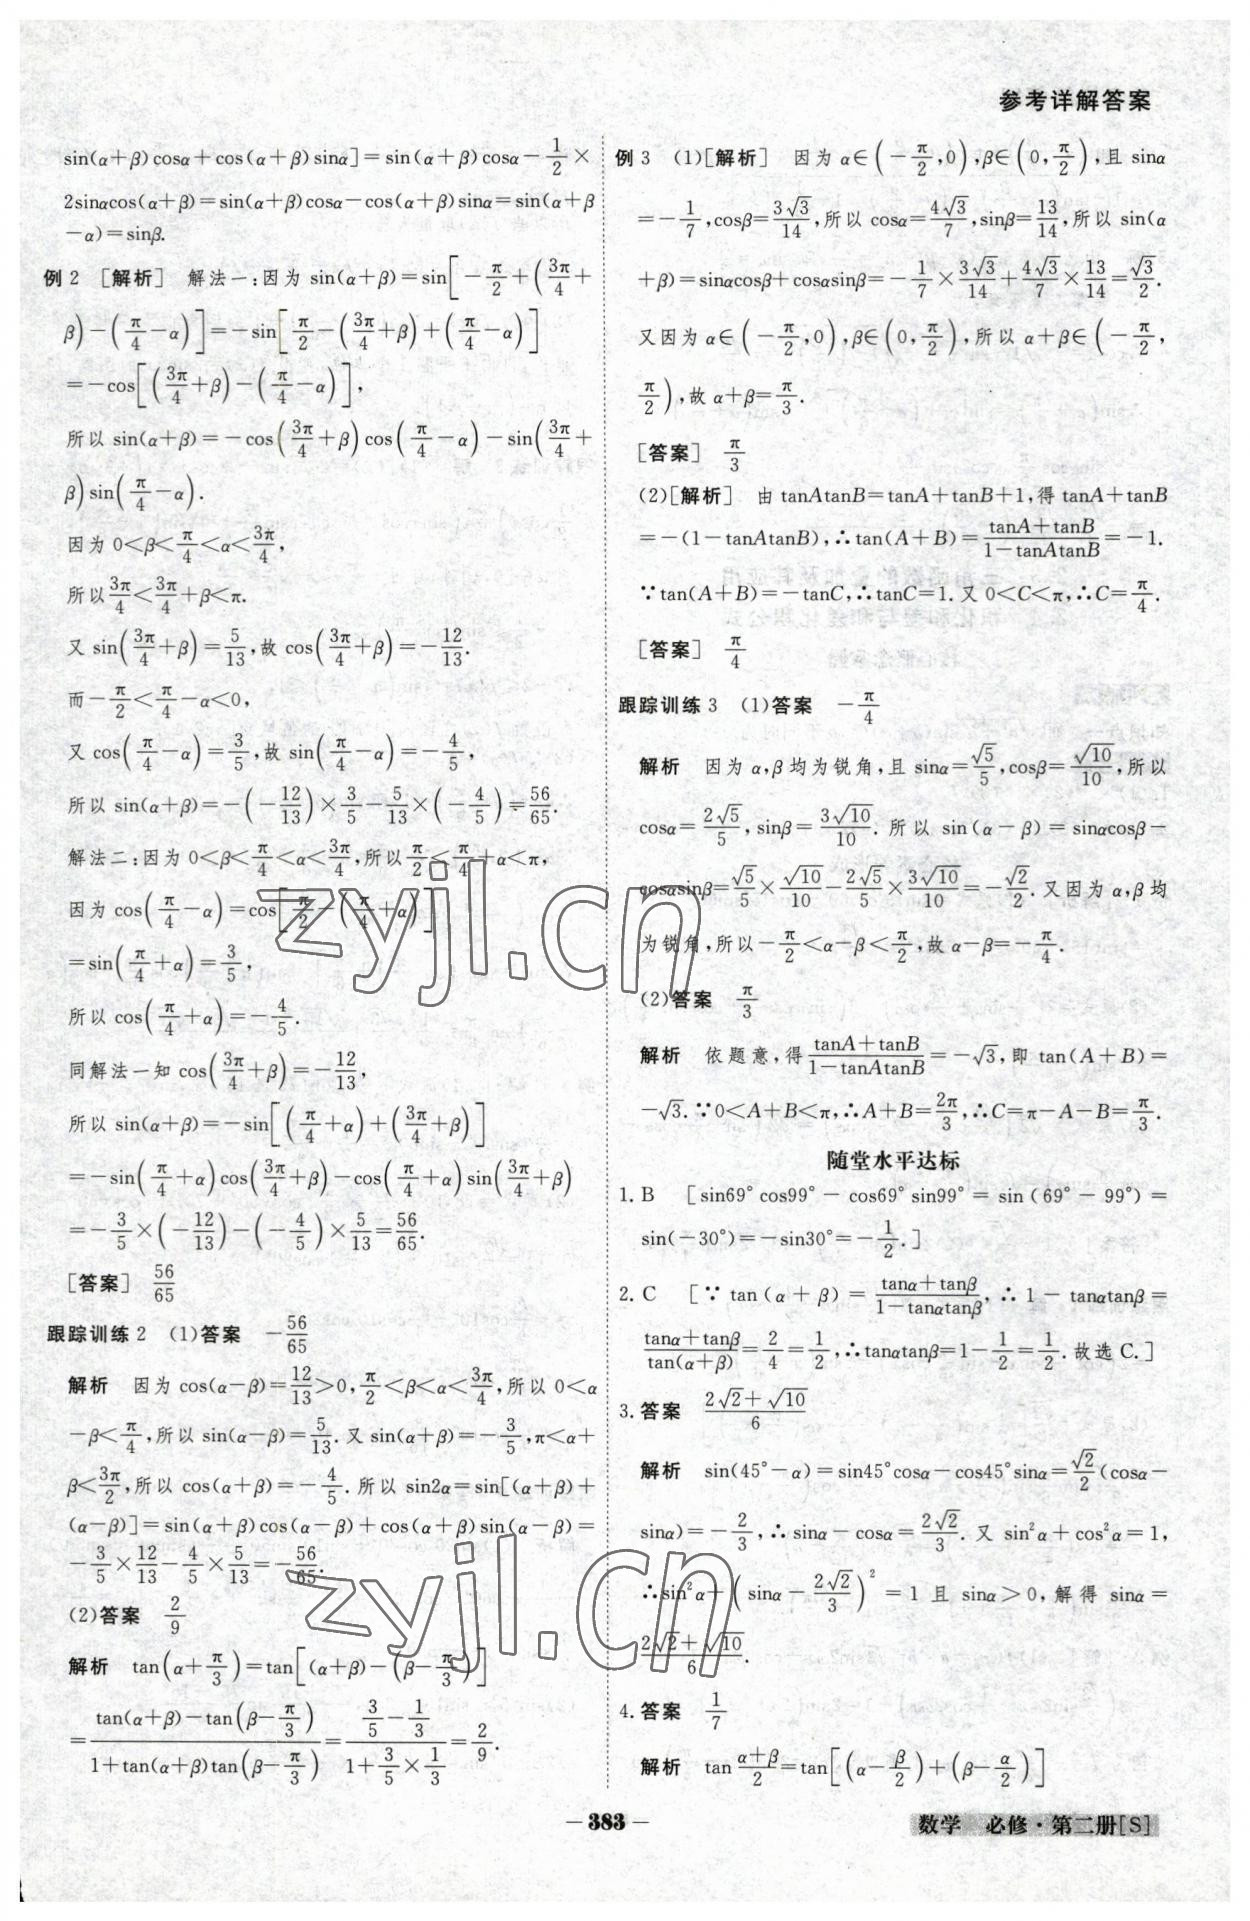 参考详解答案
sin(α+β)cosα+cos(α+β)sinα]=sin(α+β)cosα-1/2×
2sinαcos(α+β)=sin(α+β)cosα-cos(α+β)sinα=sin(α+β
-α)=sinβ.
例2 [解析] 解法一:因为 sin(α+β)=sin[-π/2+(3π/4+
β)-(π/4-α)]=-sin[π/2-(3π/4+β)+(π/4-α)]
=-cos[(3π/4+β)-(π/4-α)],
所以 sin(α+β)=-cos(3π/4+β)cos(π/4-α)-sin(3π/4+
β)sin(π/4-α).
因为 0<β<π/4<α<3π/4,
所以 3π/4<3π/4+β<π.
又 sin(3π/4+β)=5/13,故 cos(3π/4+β)=-12/13.
而-π/2<π/4-α<0,
又 cos(π/4-α)=3/5,故 sin(π/4-α)=-4/5,
所以 sin(α+β)=-(-12/13)×3/5-5/13×(-4/5)=56/65.
解法二:因为 0<β<π/4<α<3π/4,所以 π/2<π/4+α<π,
因为 cos(π/4-α)=cos[π/2-(π/4+α)]
=sin(π/4+α)=3/5,
所以 cos(π/4+α)=-4/5.
同解法一知 cos(3π/4+β)=-12/13,
所以 sin(α+β)=-sin[(π/4+α)+(3π/4+β)]
=-sin(π/4+α)cos(3π/4+β)-cos(π/4+α)sin(3π/4+β)
=-3/5×(-12/13)-(-4/5)×5/13=56/65.
[答案] 56/65
跟踪训练2 (1)答案 -56/65
解析 因为 cos(α-β)=12/13>0,π/2<β<α<3π/4,所以 0<α
-β<π/4,所以 sin(α-β)=5/13.又 sin(α+β)=-3/5,π<α+
β<3π/2,所以 cos(α+β)=-4/5.所以 sin2α=sin[(α+β)+
(α-β)]=sin(α+β)cos(α-β)+cos(α+β)sin(α-β)=
-3/5×12/13-4/5×5/13=-56/65.
(2)答案 2/9
解析 tan(α+π/3)=tan[(α+β)-(β-π/3)]
=(tan(α+β)-tan(β-π/3))/(1+tan(α+β)tan(β-π/3))=(3/5-1/3)/(1+3/5×1/3)=2/9.
例3 (1)[解析] 因为 α∈(-π/2,0),β∈(0,π/2),且 sinα
=-1/7,cosβ=3√3/14,所以 cosα=4√3/7,sinβ=13/14,所以 sin(α
+β)=sinαcosβ+cosαsinβ=-1/7×3√3/14+4√3/7×13/14=√3/2.
又因为 α∈(-π/2,0),β∈(0,π/2),所以 α+β∈(-π/2,
π/2),故 α+β=π/3.
[答案] π/3
(2)[解析] 由 tanAtanB=tanA+tanB+1,得 tanA+tanB
=-(1-tanAtanB),∴tan(A+B)=(tanA+tanB)/(1-tanAtanB)=-1.
∵tan(A+B)=-tanC,∴tanC=1.又 0<C<π,∴C=π/4.
[答案] π/4
跟踪训练3 (1)答案 -π/4
解析 因为 α,β 均为锐角,且 sinα=√5/5,cosβ=√10/10,所以
cosα=2√5/5,sinβ=3√10/10.所以 sin(α-β)=sinαcosβ-
cosαsinβ=√5/5×√10/10-2√5/5×3√10/10=-√2/2.又因为 α,β 均
为锐角,所以-π/2<α-β<π/2,故 α-β=-π/4.
(2)答案 π/3
解析 依题意,得 (tanA+tanB)/(1-tanAtanB)=-√3,即 tan(A+B)=
-√3.∵0<A+B<π,∴A+B=2π/3,∴C=π-A-B=π/3.
随堂水平达标
1. B [sin69°cos99°-cos69°sin99°=sin(69°-99°)=
sin(-30°)=-sin30°=-1/2.]
2. C [∵tan(α+β)=(tanα+tanβ)/(1-tanαtanβ),∴1-tanαtanβ=
(tanα+tanβ)/tan(α+β)=2/4=1/2,∴tanαtanβ=1-1/2=1/2.故选 C.]
3. 答案 (2√2+√10)/6
解析 sin(45°-α)=sin45°cosα-cos45°sinα=√2/2(cosα-
sinα)=-2/3,∴sinα-cosα=2√2/3.又 sin²α+cos²α=1,
∴sin²α+(sinα-2√2/3)²=1 且 sinα>0,解得 sinα=
(2√2+√10)/6.
4. 答案 1/7
解析 tan (α+β)/2=tan[(α-β/2)+(β-α/2)]
zyjl.cn
zyjl.cn
- 383 -
数学 必修·第二册[S]